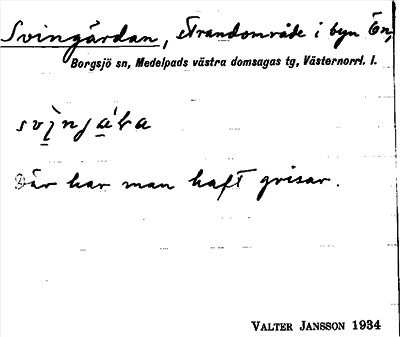 Svingårdan, strandområde i byn Ön,
Borgsjö sn, Medelpads västra domsagas tg, Västernorrl. l.
Där har man haft grisar.
VALTER JANSSON 1934